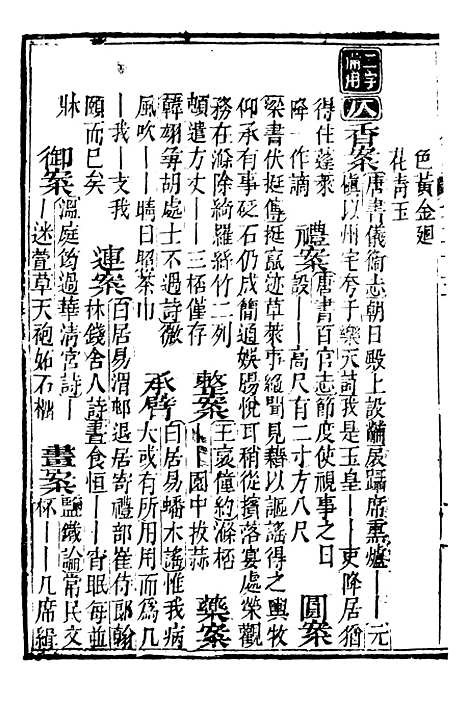 色黃金廻
花青玉
二字備用
仄
香案唐書儀衛志朝日殿上設黼扆躡席熏爐——元
稹以州宅夸子樂天詩我是玉皇——吏降居猶
得住蓬萊
降一作謫 禮案唐書百官志節度使視事之日
設——高尺有二寸方八尺 圓案
梁書伏挺傳挺 迹草萊事絕聞見藉以謳謠得之輿牧
仰承有事砭石仍成簡通娛腸悅耳稍從擯落宴處榮觀
務在滌除綺羅絲竹二列
頓遣方丈——三桮僅存 整案王裒僮約滌桮
——園中拔蒜 藥案
韓翃尋胡處士不遇詩微
風吹——晴日照茶巾 承臂白居易蟠木謠惟我病
夫或有所用用而爲几
——我——支我
頤而已矣 連案白居易渭邨退居寄禮部崔侍郎翰
林錢舍人詩晝食恒——宵眠每並
牀 御案溫庭筠過華清宮詩——
迷萱草天袍妬石榴 畫案鹽鐵論常民文
杯——几席緝